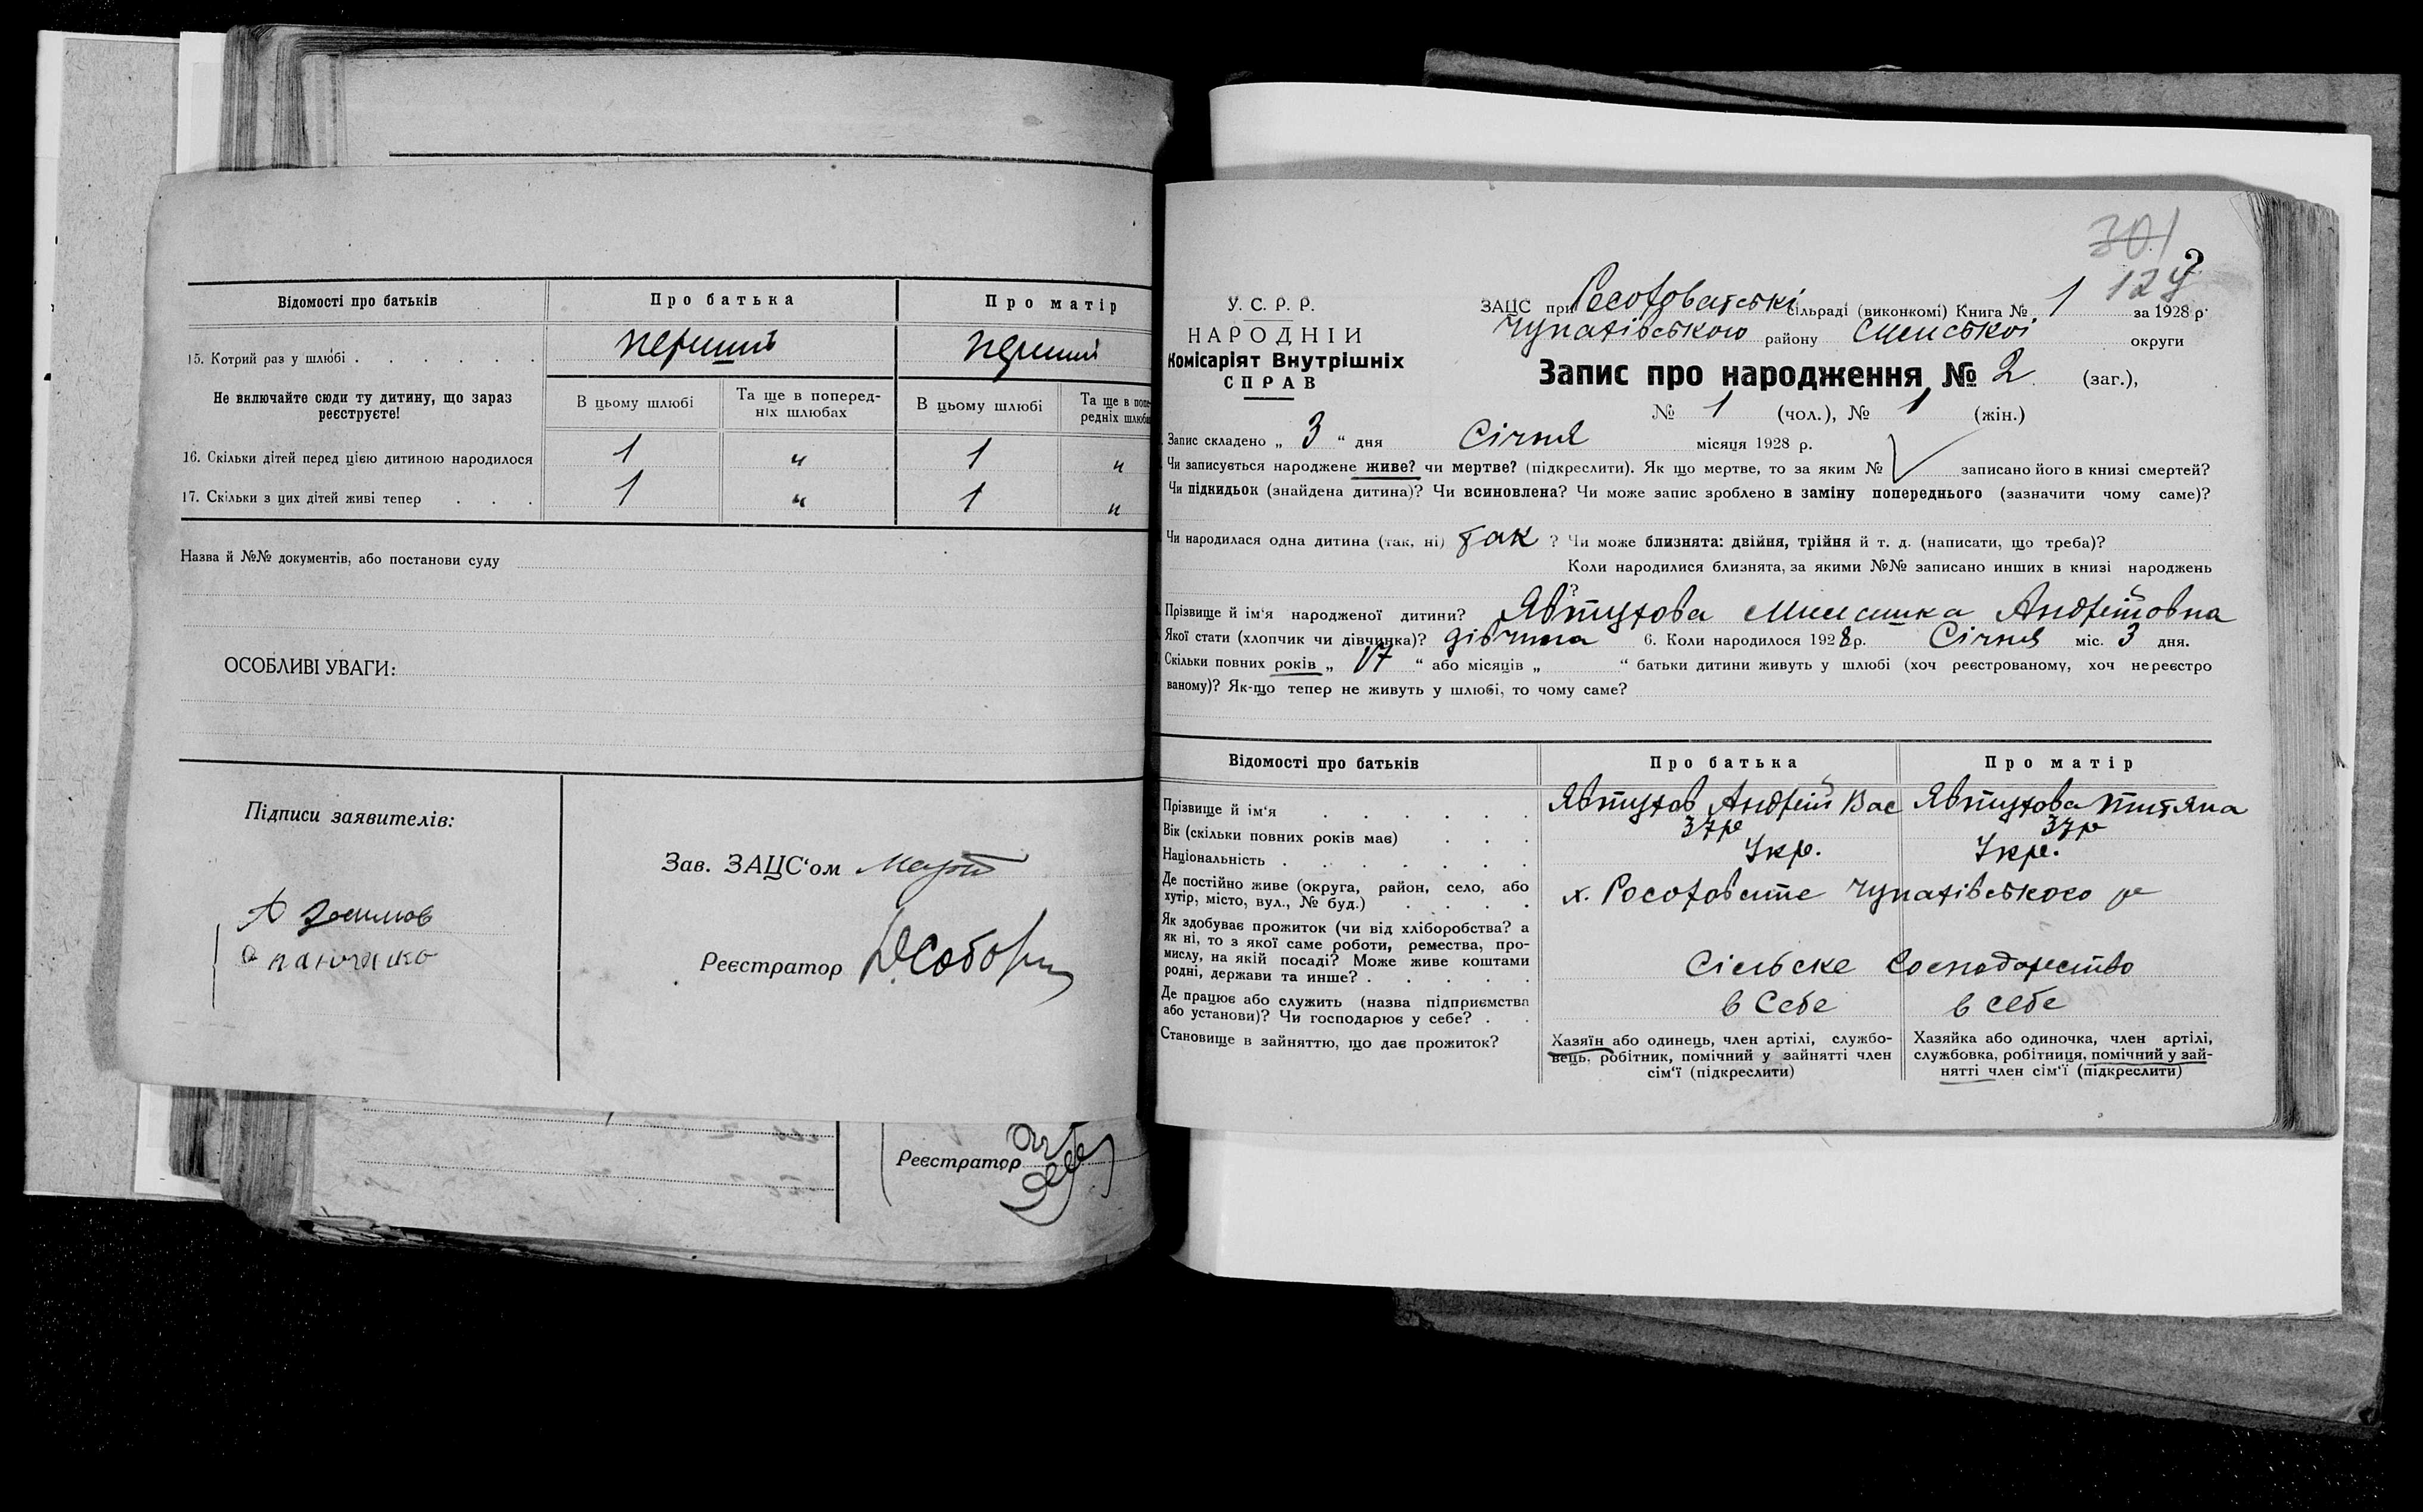 Відомості про батьків
Про батька
Про матір
15. Котрий раз у шлюбі
перший
перший
Не включайте сюди ту дитину, що зараз реєструєте!
В цьому шлюбі
Та ще в поперед-
ніх шлюбах
В цьому шлюбі
Та ще в попе-
редніх шлюбах
16. Скільки дітей перед цією дитиною народилося
1 „ 1 „
17. Скільки з цих дітей живі тепер
1 „ 1 „
Назва й №№ документів, або постанови суду
ОСОБЛИВІ УВАГИ:
Підписи заявителів:
Зав. ЗАЦС'ом
Реєстратор
Реєстратор
301
2
124
У. С. Р. Р.
НАРОДНІЙ
Комісаріят Внутрішніх
СПРАВ
ЗАЦС при Росоховатські сільраді (виконкомі) Книга № 1 за 1928 р.
Чупахівського району Сумської округи
Запис про народження № 2 (заг.),
№ 1 (чол.), № 1 (жін.)
Запис складено „ 3 “ дня Січня місяця 1928 р.
Чи записується народжене живе? чи мертве? (підкреслити). Як що мертве, то за яким № записано його в книзі смертей?
Чи підкидьок (знайдена дитина)? Чи всиновлена? Чи може запис зроблено в заміну попереднього (зазначити чому саме)?
Чи народилася одна дитина (так, ні) так ? Чи може близнята: двійня, трійня й т. д. (написати, що треба)?
Коли народилися близнята, за якими №№ записано инших в книзі народжень
?
Прізвище й ім'я народженої дитини? Явтухова Андрійовна
Якої стати (хлопчик чи дівчинка)? дівчина 6. Коли народилося 1928 р. Січня міс. 3 дня.
Скільки повних років „ 17 “ або місяців „ “ батьки дитини живуть у шлюбі (хоч реєстрованому, хоч нереєстро
ваному)? Як-що тепер не живуть у шлюбі, то чому саме?
Відомості про батьків
Про батька
Про матір
Прізвище й ім'я
Явтухов Андрій Вас
Явтухова Титяна
Вік (скільки повних років має)
37р
37р
Національність
Укр.
Укр.
Де постійно живе (округа, район, село, або
хутір, місто, вул., № буд.)
х. Росоховате Чупахівського р
Як здобуває прожиток (чи від хліборобства? а
як ні, то з якої саме роботи, ремества, про-
мислу, на якій посаді? Може живе коштами
родні, держави та инше?
Сільське господарство
Де працює або служить (назва підприємства
або установи)? Чи господарює у себе?
в себе
в себе
Становище в зайняттю, що дає прожиток?
Хазяїн або одинець, член артілі, службо-
вець, робітник, помічний у зайнятті член
сім'ї (підкреслити)
Хазяйка або одиночка, член артілі,
службовка, робітниця, помічний у зай-
нятті член сім'ї (підкреслити)